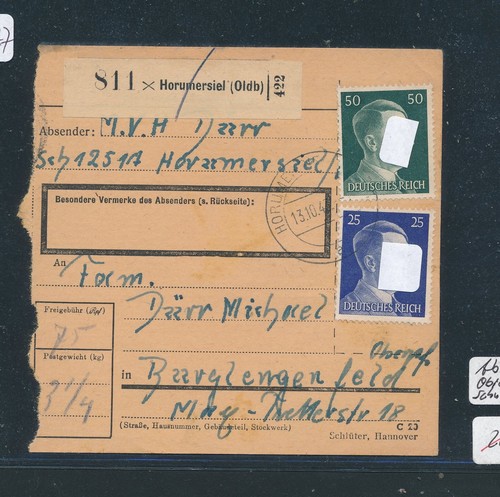 811 × Horumersiel (Oldb) 422
Absender: M.V.H Dürr
Sch12517 Horumersiel
50 50
DEUTSCHES REICH
25 25
DEUTSCHES REICH
13.10.4
Besondere Vermerke des Absenders (s. Rückseite):
An
Fam.
Dürr Michael
Freigebühr
75
Postgewicht (kg)
3 1/4
Oberpf.
in Burglengenfeld
18
(Straße, Hausnummer, Gebäudeteil, Stockwerk)
C 20
Schlüter, Hannover